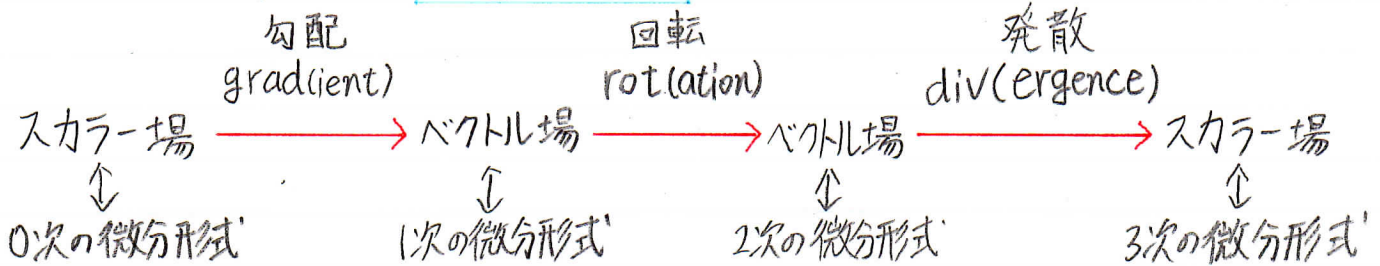 勾配 回転 発散
grad(ient) rot(ation) div(ergence)
スカラー場 → ベクトル場 → ベクトル場 → スカラー場
↕ ↕ ↕ ↕
0次の微分形式 1次の微分形式 2次の微分形式 3次の微分形式